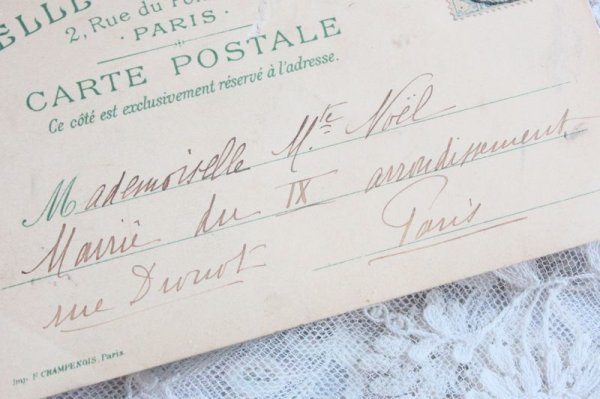 ELLE
2, Rue du Pon
· PARIS ·
CARTE POSTALE
Ce côté est exclusivement réservé à l'adresse.
Mademoiselle Mte Noël
Mairie du IX arrondissement
rue Drouot Paris
Imp. F CHAMPENOIS, Paris.